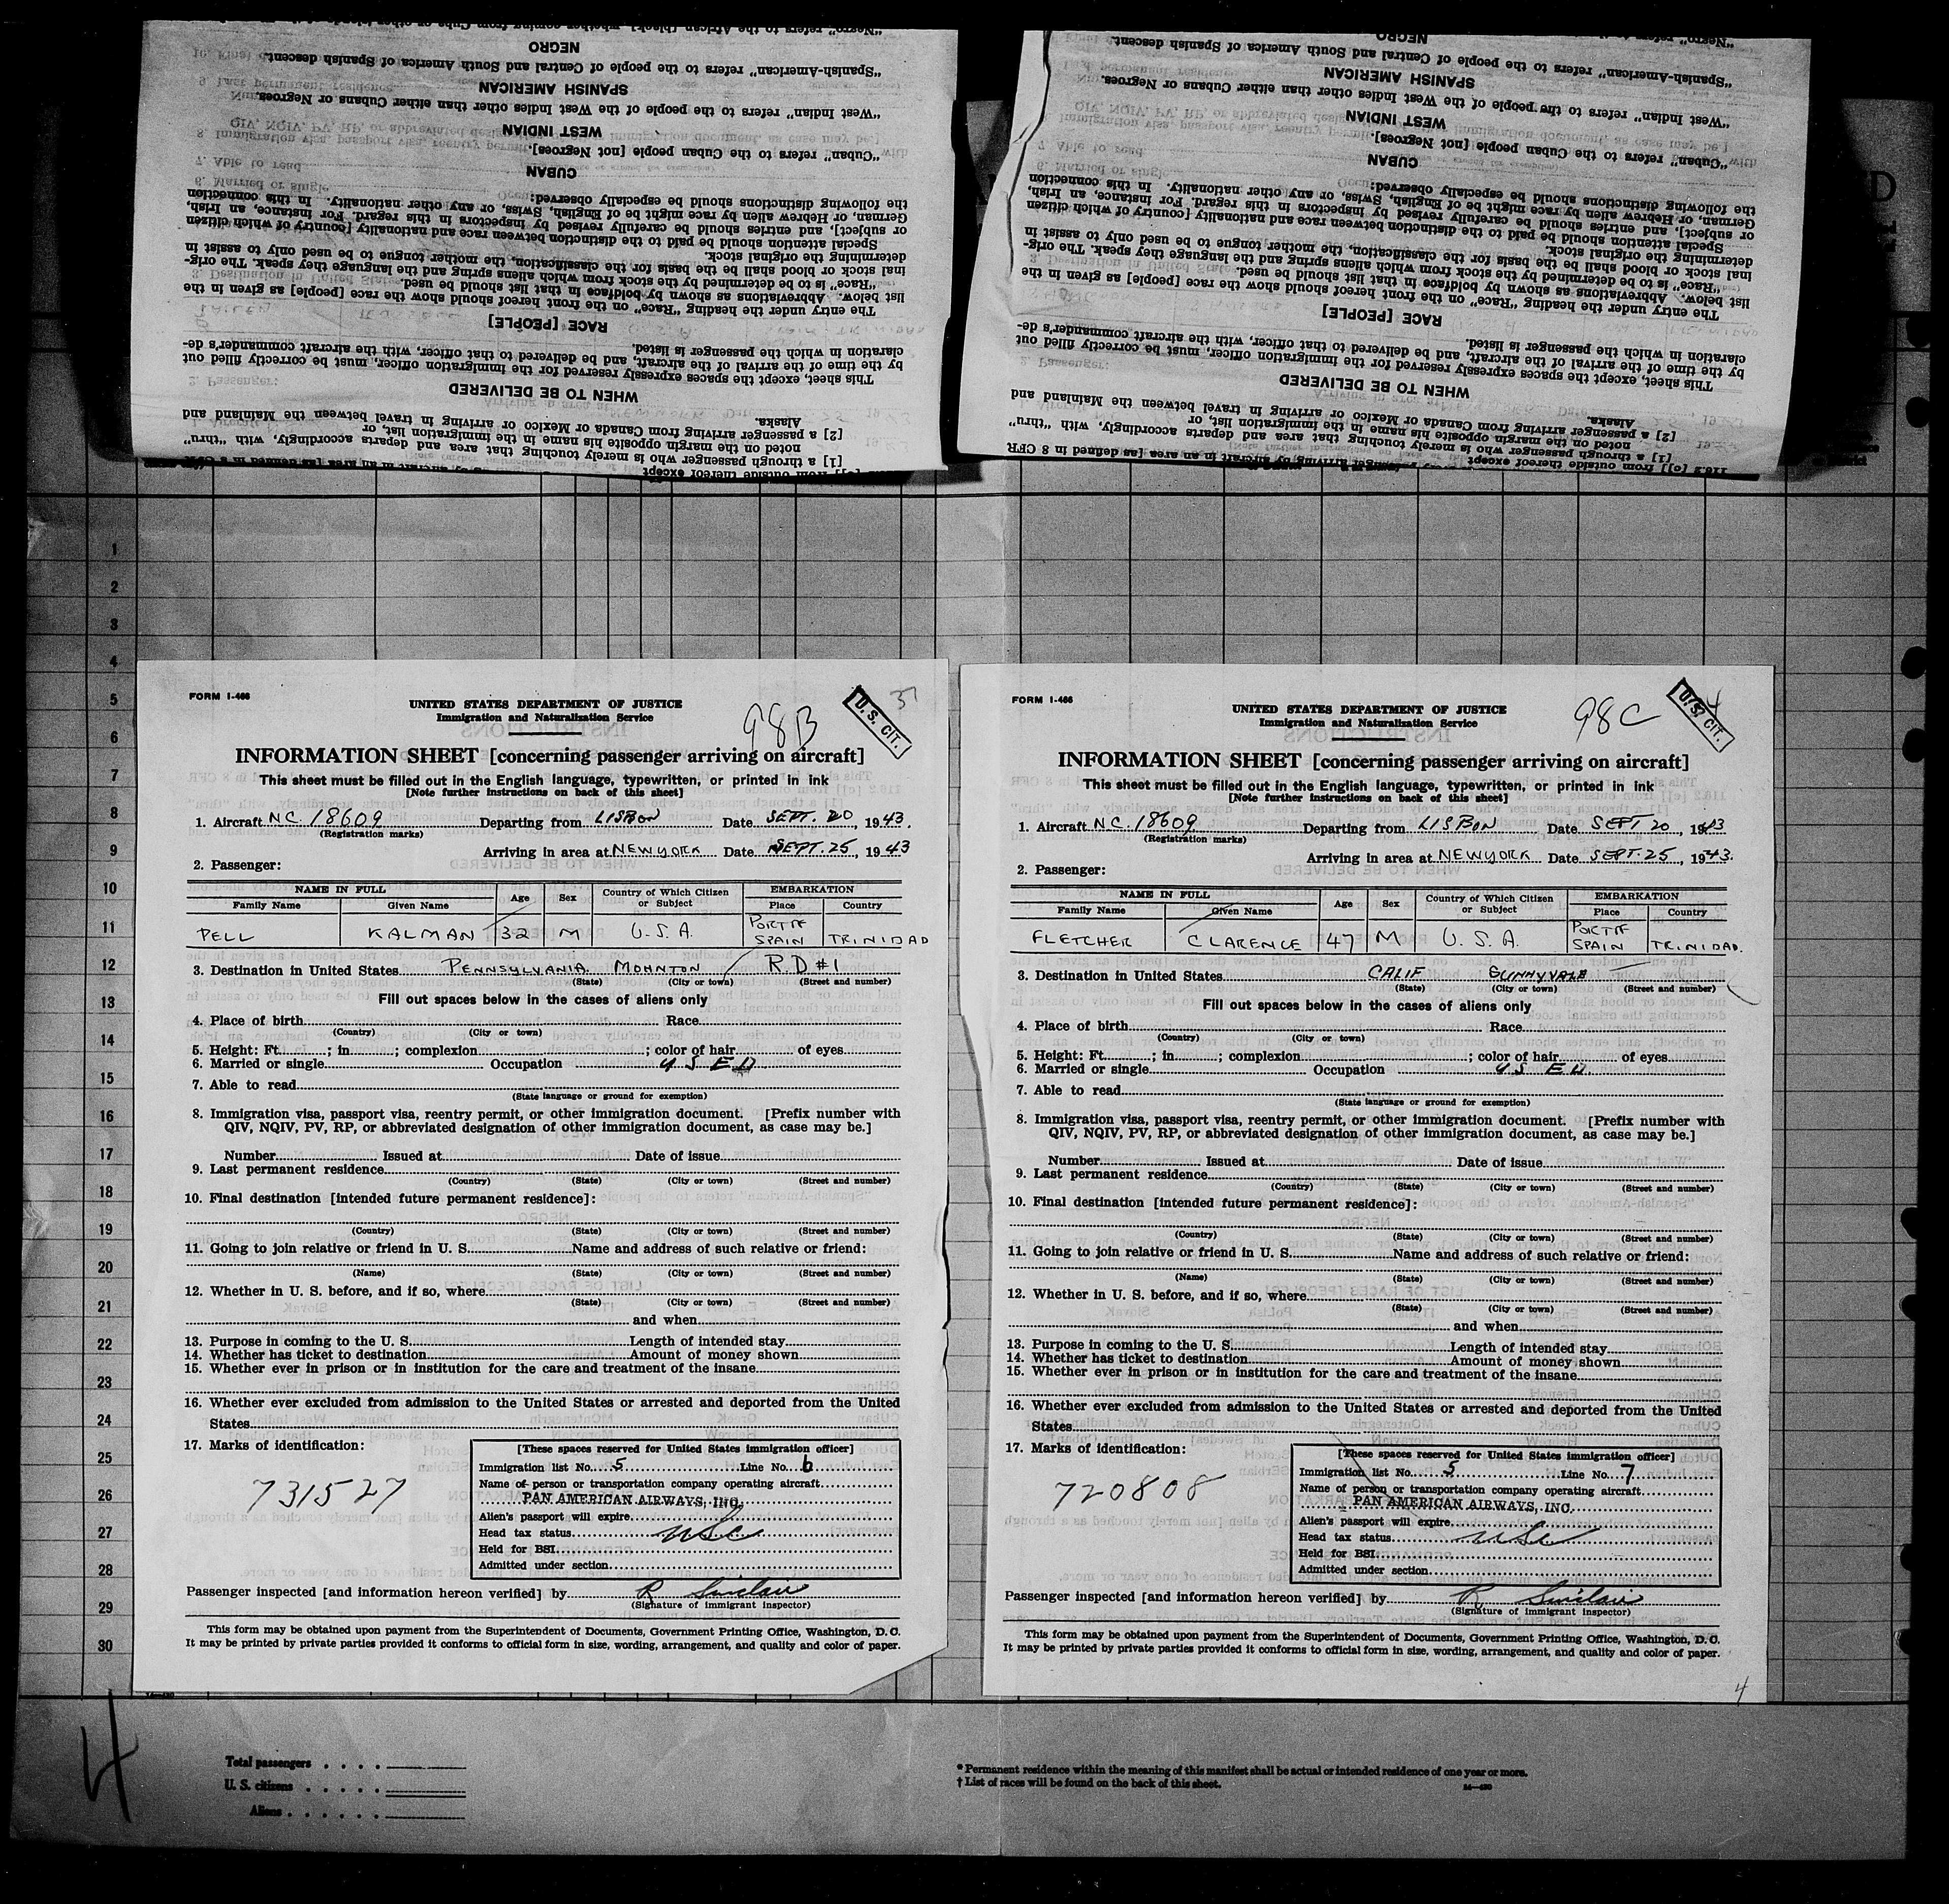 "Negro" refers to the African [black], whether coming from Cuba or other islands of the West Indies
NEGRO
"Spanish-American" refers to the people of Central and South America of Spanish descent.
SPANISH AMERICAN
"West Indian" refers to the people of the West Indies other than either Cubans or Negroes.
WEST INDIAN
"Cuban" refers to the Cuban people [not Negroes].
CUBAN
the following distinctions should be especially observed:
German, or Hebrew alien by race might be of English, Swiss, or any other nationality. In this connection
or subject], and entries should be carefully revised by inspectors in this regard. For instance, an Irish,
Special attention should be paid to the distinction between race and nationality [country of which citizen
determining the original stock.
inal stock or blood shall be the basis for the classification, the mother tongue to be used only to assist in
"Race" is to be determined by the stock from which aliens spring and the language they speak. The orig-
list below. Abbreviations as shown by boldface in that list should be used.
The entry under the heading "Race" on the front hereof should show the race [people] as given in the
RACE [PEOPLE]
claration in which the passenger is listed.
by the time of the arrival of the aircraft, and be delivered to that officer, with the aircraft commander's de-
This sheet, except the spaces expressly reserved for the immigration officer, must be correctly filled out
WHEN TO BE DELIVERED
Alaska.
[2] a passenger arriving from Canada or Mexico or arriving in travel between the Mainland and
noted on the margin opposite his name in the immigration list, or
[1] a through passenger who is merely touching that area and departs accordingly, with "thru"
NEGRO
"Spanish-American" refers to the people of Central and South America of Spanish descent.
SPANISH AMERICAN
"West Indian" refers to the people of the West Indies other than either Cubans or Negroes.
WEST INDIAN
"Cuban" refers to the Cuban people [not Negroes].
CUBAN
the following distinctions should be especially observed:
German, or Hebrew alien by race might be of English, Swiss, or any other nationality. In this connection
or subject], and entries should be carefully revised by inspectors in this regard. For instance, an Irish,
Special attention should be paid to the distinction between race and nationality [country of which citizen
determining the original stock.
inal stock or blood shall be the basis for the classification, the mother tongue to be used only to assist in
"Race" is to be determined by the stock from which aliens spring and the language they speak. The orig-
list below. Abbreviations as shown by boldface in that list should be used.
The entry under the heading "Race" on the front hereof should show the race [people] as given in the
RACE [PEOPLE]
claration in which the passenger is listed.
by the time of the arrival of the aircraft, and be delivered to that officer, with the aircraft commander's de-
This sheet, except the spaces expressly reserved for the immigration officer, must be correctly filled out
WHEN TO BE DELIVERED
Alaska.
[2] a passenger arriving from Canada or Mexico or arriving in travel between the Mainland and
noted on the margin opposite his name in the immigration list, or
[1] a through passenger who is merely touching that area and departs accordingly, with "thru"
116.2 [c]] from outside thereof except
1
2
3
4
5
6
7
8
9
10
11
12
13
14
15
16
17
18
19
20
21
22
23
24
25
26
27
28
29
30
FORM I-466
UNITED STATES DEPARTMENT OF JUSTICE
Immigration and Naturalization Service
98B
U.S. CIT.
INFORMATION SHEET [concerning passenger arriving on aircraft]
This sheet must be filled out in the English language, typewritten, or printed in ink
[Note further instructions on back of this sheet]
1. Aircraft NC 18609 Departing from LISBON Date SEPT. 20, 1943.
(Registration marks)
Arriving in area at NEWYORK Date SEPT. 25, 1943
2. Passenger:
NAME IN FULL Age Sex Country of Which Citizen or Subject EMBARKATION
Family Name Given Name Place Country
PELL KALMAN 32 M U.S.A. PORT OF SPAIN TRINIDAD
3. Destination in United States PENNSYLVANIA MOHNTON R.D #1
(State) (City or town) (Street and number)
Fill out spaces below in the cases of aliens only
4. Place of birth Race
(Country) (City or town)
5. Height: Ft. ; in. ; complexion ; color of hair of eyes
6. Married or single Occupation U S E D
7. Able to read
(State language or ground for exemption)
8. Immigration visa, passport visa, reentry permit, or other immigration document. [Prefix number with
QIV, NQIV, PV, RP, or abbreviated designation of other immigration document, as case may be.]
Number Issued at Date of issue
9. Last permanent residence
(Country) (State) (City or town) (Street and number)
10. Final destination [intended future permanent residence]:
(Country) (State) (City or town) (Street and number)
11. Going to join relative or friend in U. S. Name and address of such relative or friend:
(Name) (State) (City or town) (Street and number)
12. Whether in U. S. before, and if so, where
(State) (City or town) (Street and number)
and when
13. Purpose in coming to the U. S. Length of intended stay
14. Whether has ticket to destination Amount of money shown
15. Whether ever in prison or in institution for the care and treatment of the insane
16. Whether ever excluded from admission to the United States or arrested and deported from the United
States
17. Marks of identification:
731527
[These spaces reserved for United States immigration officer]
Immigration list No. 5 Line No. 6
Name of person or transportation company operating aircraft
PAN AMERICAN AIRWAYS, INC.
Alien's passport will expire
Head tax status USC
Held for BSI
Admitted under section
Passenger inspected [and information hereon verified] by R Sinclair
(Signature of immigrant inspector)
This form may be obtained upon payment from the Superintendent of Documents, Government Printing Office, Washington, D. C.
It may be printed by private parties provided it conforms to official form in size, wording, arrangement, and quality and color of paper.
FORM I-466
UNITED STATES DEPARTMENT OF JUSTICE
Immigration and Naturalization Service
98C
U.S. CIT.
INFORMATION SHEET [concerning passenger arriving on aircraft]
This sheet must be filled out in the English language, typewritten, or printed in ink
[Note further instructions on back of this sheet]
1. Aircraft NC. 18609 Departing from LISBON Date SEPT 20, 1943
(Registration marks)
Arriving in area at NEWYORK Date SEPT. 25, 1943.
2. Passenger:
NAME IN FULL Age Sex Country of Which Citizen or Subject EMBARKATION
Family Name Given Name Place Country
FLETCHER CLARENCE 47 M U.S.A. PORT OF SPAIN TRINIDAD.
3. Destination in United States CALIF SUNNYVALE
(State) (City or town) (Street and number)
Fill out spaces below in the cases of aliens only
4. Place of birth Race
(Country) (City or town)
5. Height: Ft. ; in. ; complexion ; color of hair of eyes
6. Married or single Occupation U S E D
7. Able to read
(State language or ground for exemption)
8. Immigration visa, passport visa, reentry permit, or other immigration document. [Prefix number with
QIV, NQIV, PV, RP, or abbreviated designation of other immigration document, as case may be.]
Number Issued at Date of issue
9. Last permanent residence
(Country) (State) (City or town) (Street and number)
10. Final destination [intended future permanent residence]:
(Country) (State) (City or town) (Street and number)
11. Going to join relative or friend in U. S. Name and address of such relative or friend:
(Name) (State) (City or town) (Street and number)
12. Whether in U. S. before, and if so, where
(State) (City or town) (Street and number)
and when
13. Purpose in coming to the U. S. Length of intended stay
14. Whether has ticket to destination Amount of money shown
15. Whether ever in prison or in institution for the care and treatment of the insane
16. Whether ever excluded from admission to the United States or arrested and deported from the United
States
17. Marks of identification:
720808
[These spaces reserved for United States immigration officer]
Immigration list No. 5 Line No. 7
Name of person or transportation company operating aircraft
PAN AMERICAN AIRWAYS, INC.
Alien's passport will expire
Head tax status USC
Held for BSI
Admitted under section
Passenger inspected [and information hereon verified] by R Sinclair
(Signature of immigrant inspector)
This form may be obtained upon payment from the Superintendent of Documents, Government Printing Office, Washington, D. C.
It may be printed by private parties provided it conforms to official form in size, wording, arrangement, and quality and color of paper.
4
4
Total passengers
U. S. citizens
Aliens
* Permanent residence within the meaning of this manifest shall be actual or intended residence of one year or more.
† List of races will be found on the back of this sheet.